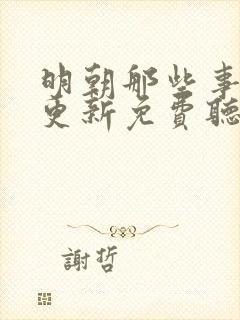 明朝那些事
更新免費聽
謝哲